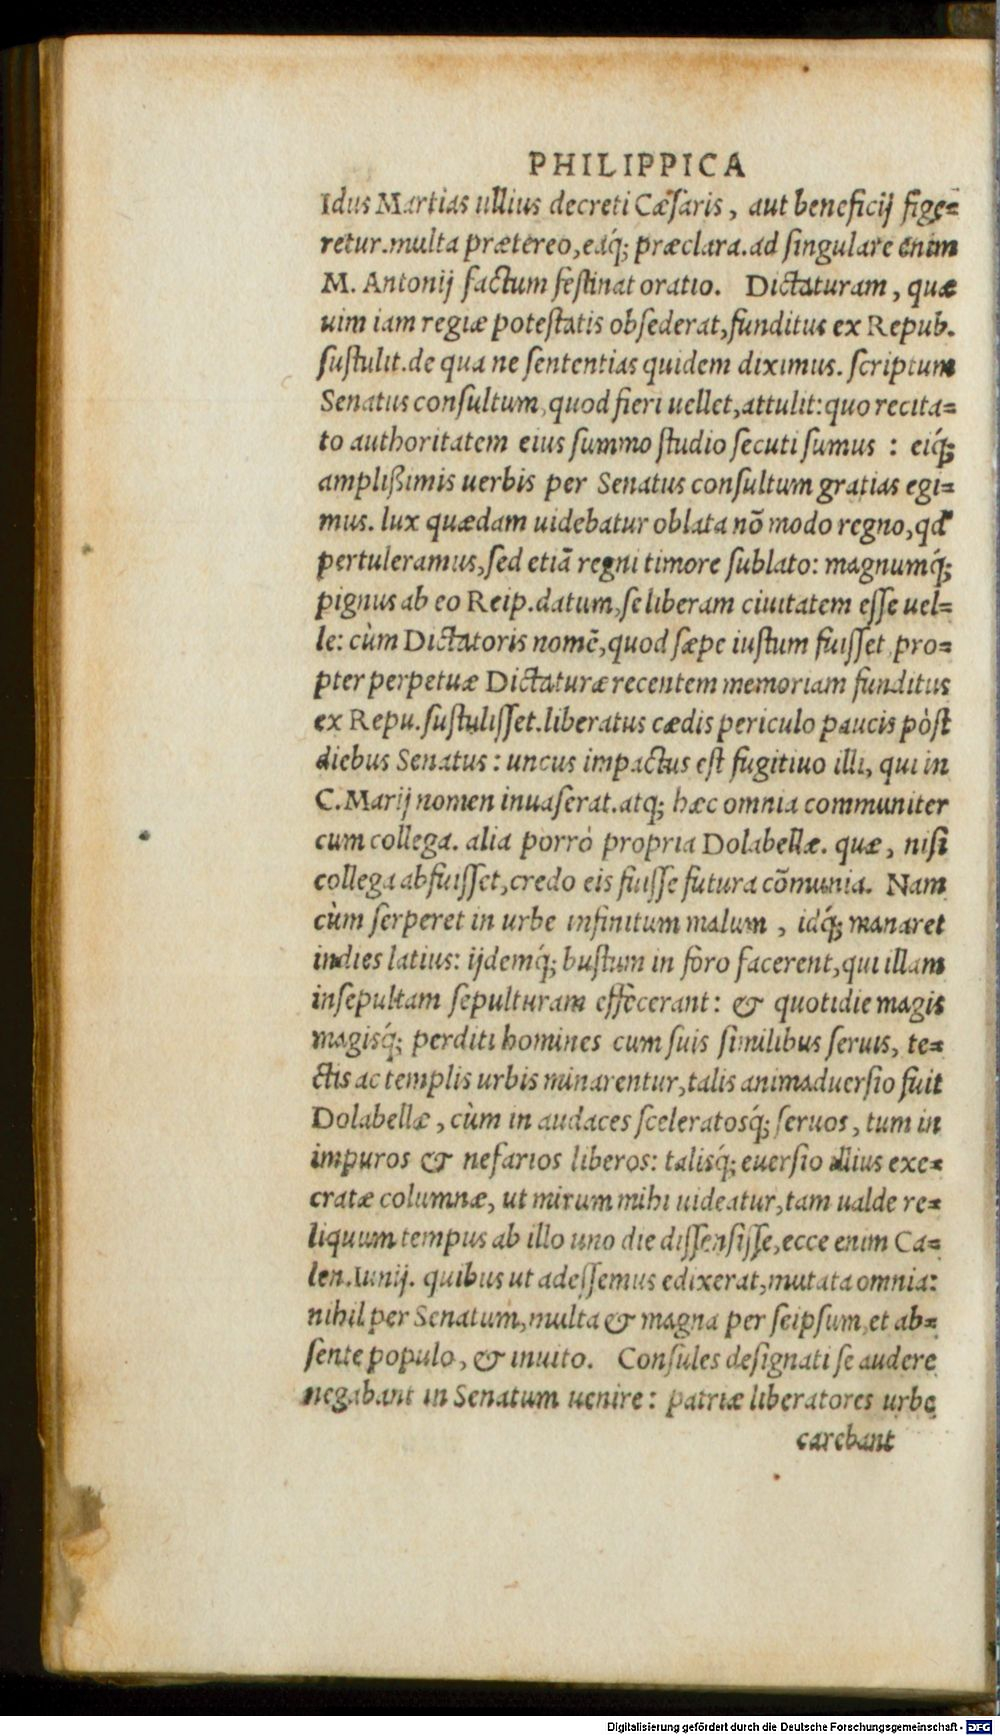 PHILIPPICA
Idus Martias ullius decreti Cæsaris, aut beneficij fige=
retur. multa prætereo, eaq́; præclara. ad singulare enim
M. Antonij factum festinat oratio. Dictaturam, quæ
uim iam regiæ potestatis obsederat, funditus ex Repub.
sustulit. de qua ne sententias quidem diximus. scriptum
Senatus consultum, quod fieri uellet, attulit: quo recita=
to authoritatem eius summo studio secuti sumus : eiq́;
amplißimis uerbis per Senatus consultum gratias egi=
mus. lux quædam uidebatur oblata nõ modo regno, qd'
pertuleramus, sed etiã regni timore sublato: magnumq́;
pignus ab eo Reip. datum, se liberam ciuitatem esse uel=
le: cùm Dictatoris nomẽ, quod sæpe iustum fuisset, pro=
pter perpetuæ Dictaturæ recentem memoriam funditus
ex Repu. sustulisset. liberatus cædis periculo paucis pòst
diebus Senatus : uncus impactus est fugitiuo illi, qui in
C. Marij nomen inuaserat. atq; hæc omnia communiter
cum collega. alia porrò propria Dolabellæ. quæ, nisi
collega abfuisset, credo eis fuisse futura cõmunia. Nam
cùm serperet in urbe infinitum malum , idq́; manaret
indies latius: ijdemq́; bustum in foro facerent, qui illam
insepultam sepulturam effecerant: & quotidie magis
magisq́; perditi homines cum suis similibus seruis, te=
ctis ac templis urbis minarentur, talis animaduersio fuit
Dolabellæ , cùm in audaces sceleratosq́; seruos, tum in
impuros & nefarios liberos: talisq́; euersio illius exe=
cratæ columnæ, ut mirum mihi uideatur, tam ualde re=
liquum tempus ab illo uno die dissensisse, ecce enim Ca=
len. Iunij. quibus ut adessemus edixerat, mutata omnia:
nihil per Senatum, multa & magna per seipsum, et ab=
sente populo, & inuito. Consules designati se audere
negabant in Senatum uenire : patriæ liberatores urbe
carebant
Digitalisierung gefördert durch die Deutsche Forschungsgemeinschaft - DFG